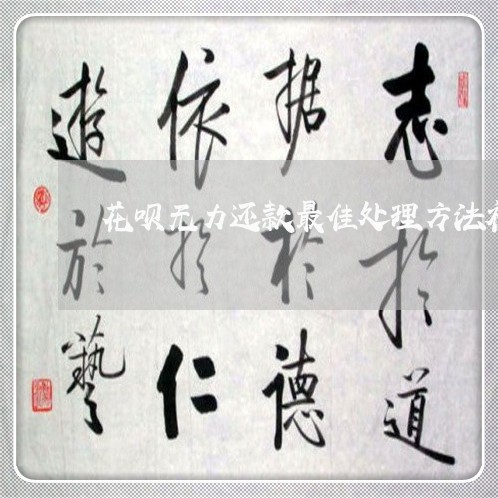 志於道
据於德
依於仁
遊於藝
花呗无力还款最佳处理方法